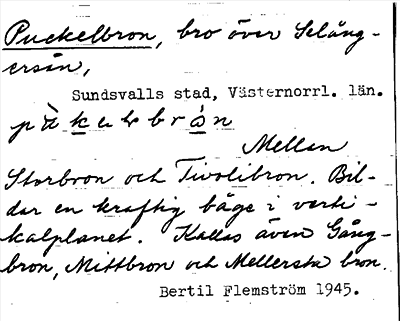 Puckelbron, bro över Selång-
ersån,
Sundsvalls stad, Västernorrl. län.
Mellan
Storbron och Tivolibron. Bil-
dar en kraftig båge i verti-
kalplanet. Kallas även Gång-
bron, Mittbron och Mellersta bron.
Bertil Flemström 1945.